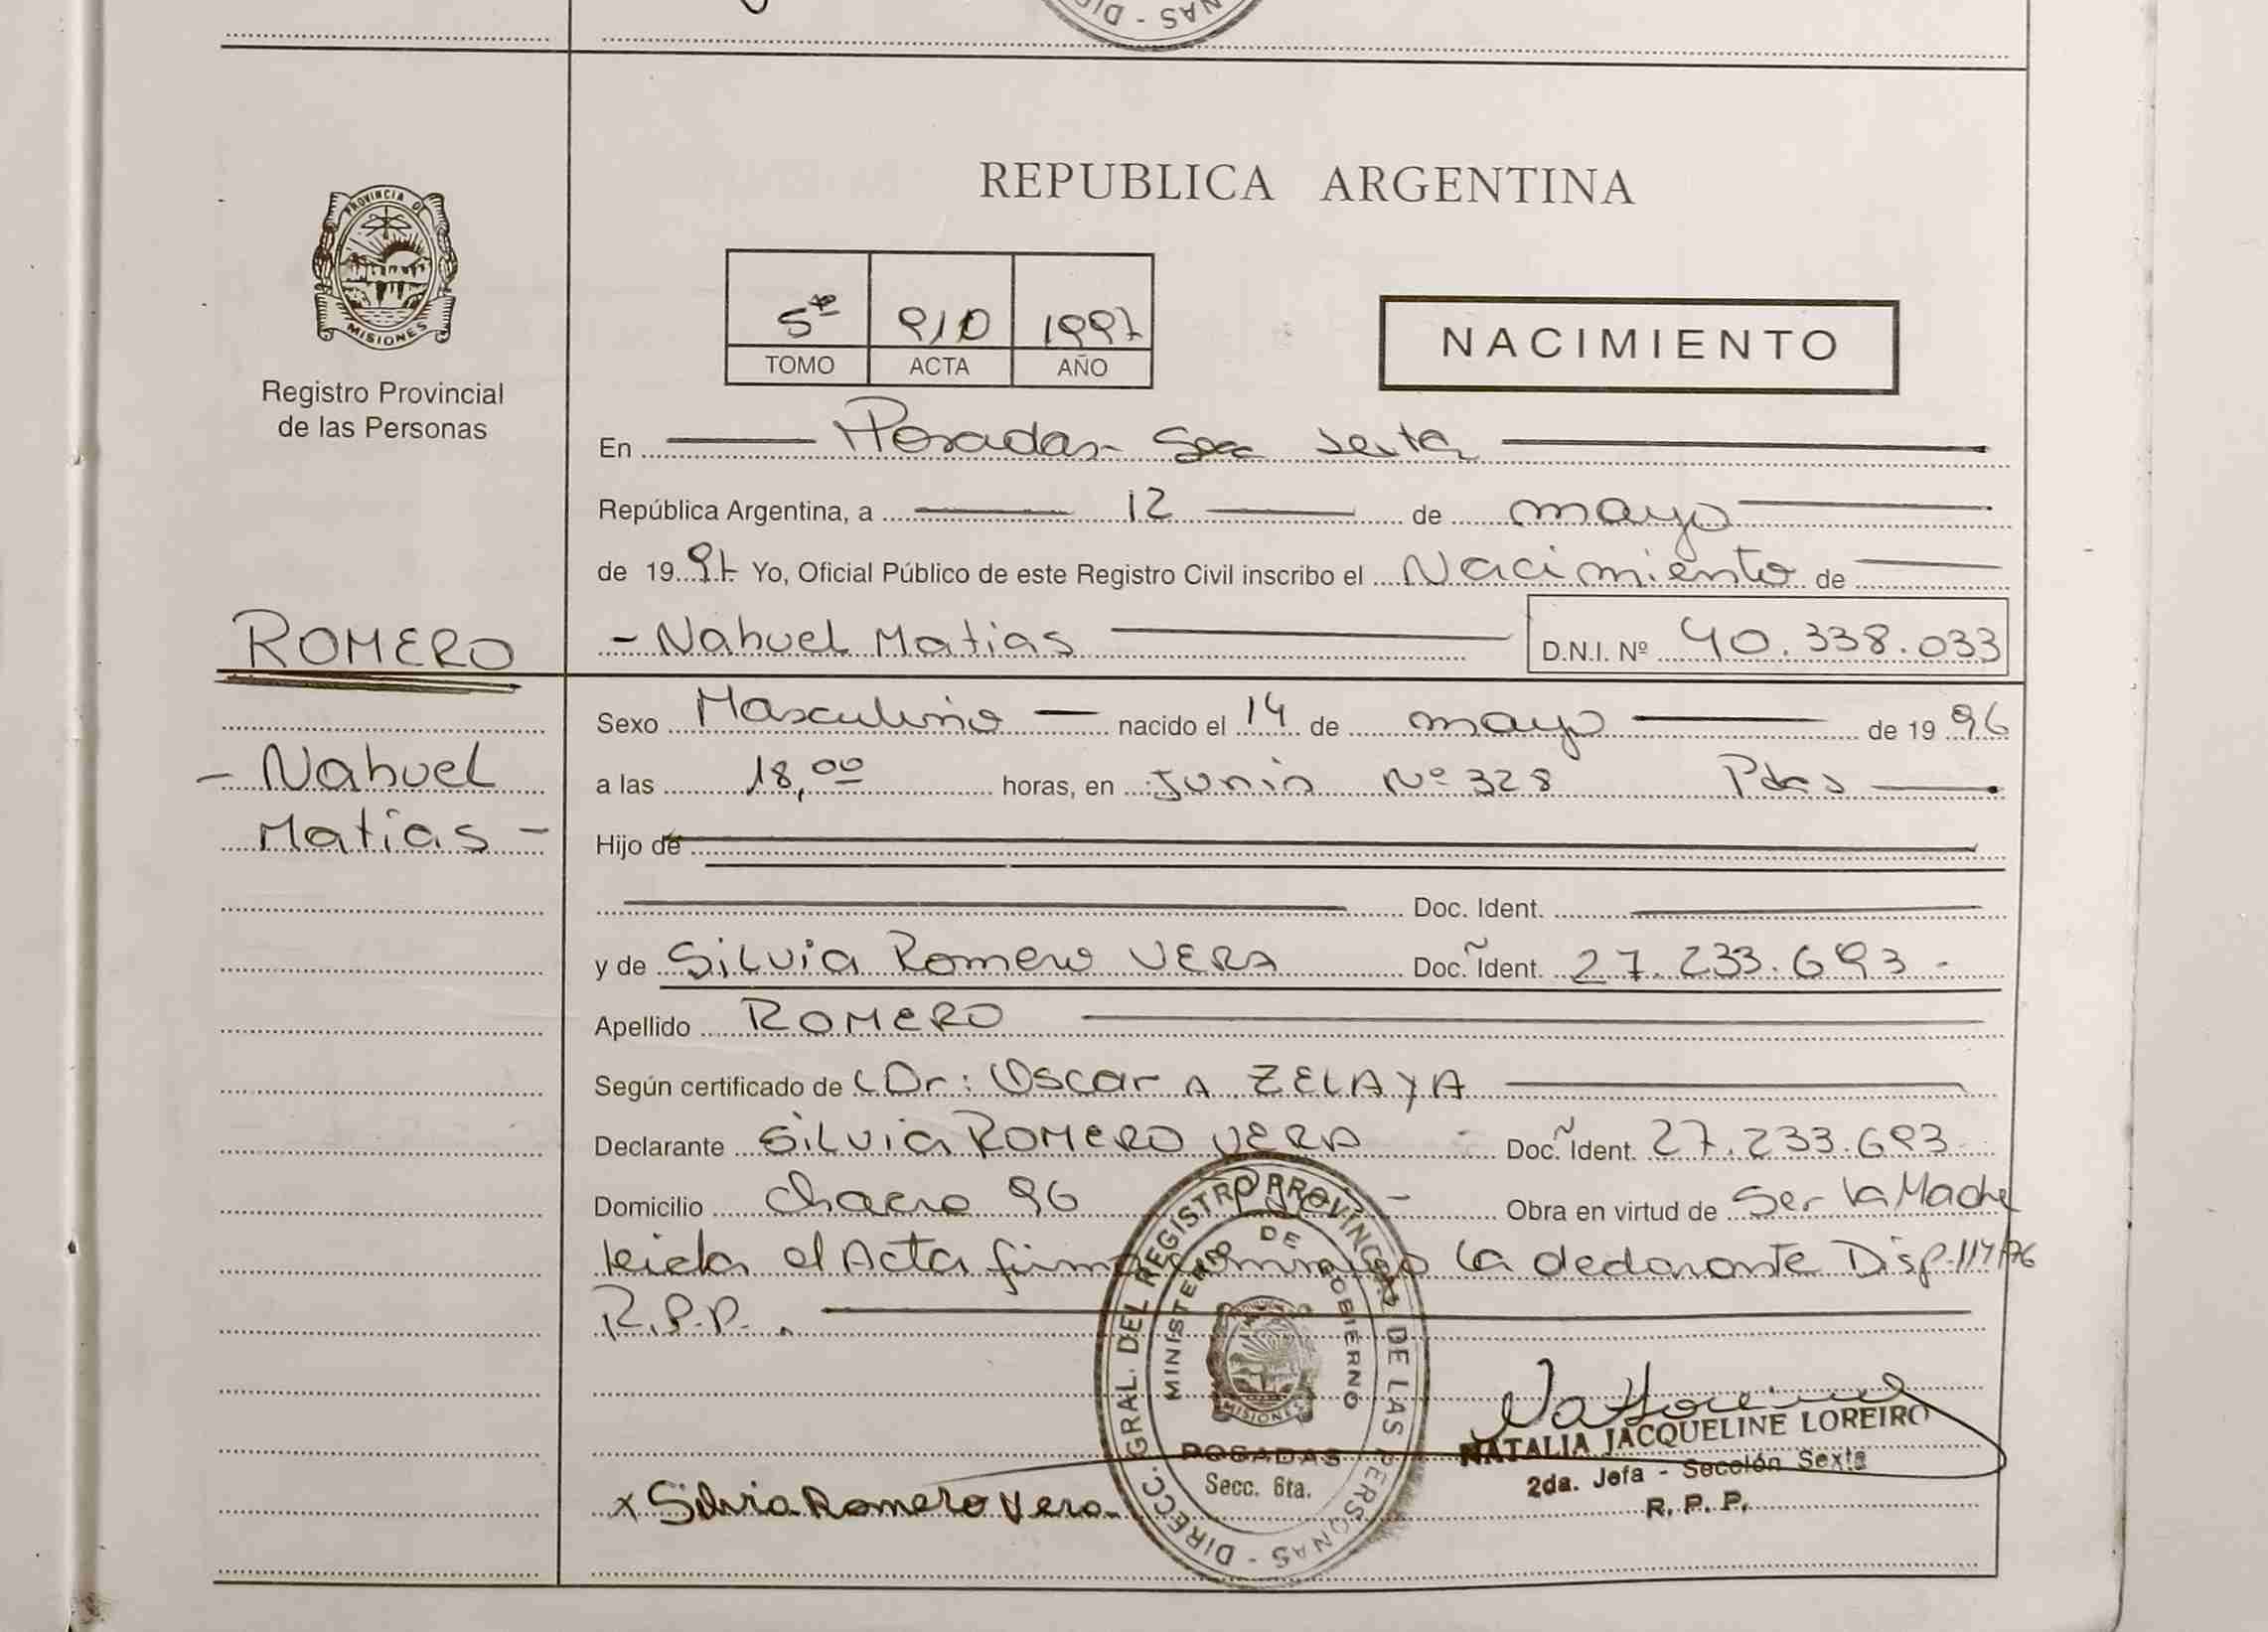 NAS - DIR
PROVINCIA DE
MISIONES
Registro Provincial
de las Personas
REPUBLICA ARGENTINA
5º 910 1997
TOMO ACTA AÑO
NACIMIENTO
En Posadas Secc Sexta
República Argentina, a 12 de mayo
de 1997 Yo, Oficial Público de este Registro Civil inscribo el Nacimiento de
ROMERO
- Nahuel Matias D.N.I. Nº 40.338.033
Sexo Masculino nacido el 14 de mayo de 1996
- Nahuel
Matias -
a las 18,00 horas, en Junin Nº 328 Pdas
Hijo de
Doc. Ident.
y de Silvia Romero VERA Doc. Ident. 27.233.693 -
Apellido ROMERO
Según certificado de Dr: Oscar A ZELAYA
Declarante Silvia ROMERO VERA Doc. Ident. 27.233.693
Domicilio Chaco 96 Obra en virtud de Ser la Madre
leida el Acta firma conmigo la declarante Disp. 114/76
R.P.P.
DIRECC. GRAL. DEL REGISTRO PROVINCIAL DE LAS PERSONAS
MINISTERIO DE GOBIERNO
MISIONES
POSADAS
Secc. 6ta.
NATALIA JACQUELINE LOREIRO
2da. Jefa - Sección Sexta
R. P. P.
x Silvia Romero Vera